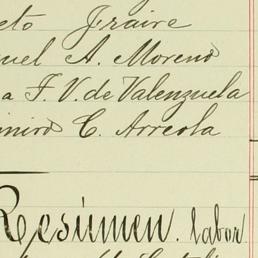 eto Fraire
uel A. Moreno
a F. V. de Valenzuela
imiro C. Arreola
Resúmen. labor